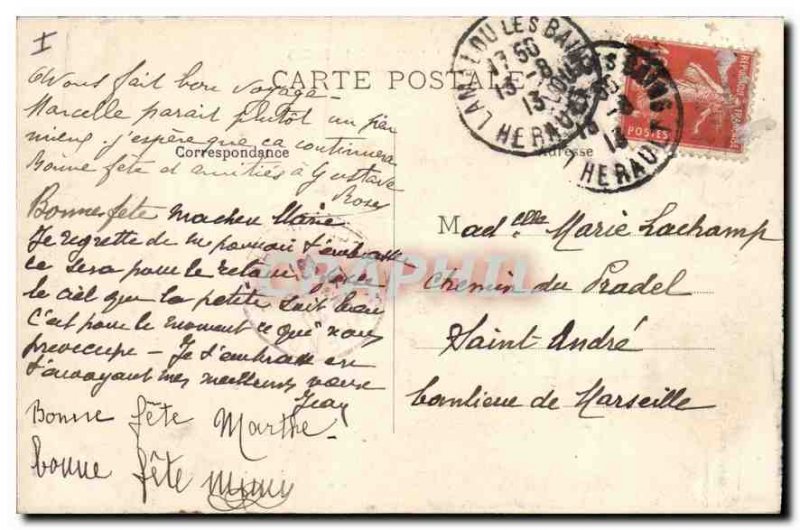 I
CARTE POSTALE
Correspondance
Adresse
Avons fait bon voyage
Marcelle parait plutôt un peu
mieux. j'espère que ça continuera
Bonne fête et amitiés à Gustave
Rose
Bonne fête Marie
Je regrette de ne pouvoir t'embrasser
ce sera pour le retour
le ciel que la petite soit bien
C'est pour le moment ce qui nous
preoccupe - Je t'embrasse en
t'envoyant mes meilleurs voeux
Jean
Bonne fête Marthe
bonne fête mimi
LAMALOU LES BAINS
17 50
13 - 8
13
HERAULT
POSTES
Mad elle Marie Lachamp
Chemin du Pradel
Saint-André
banlieue de Marseille
CPAPHIL